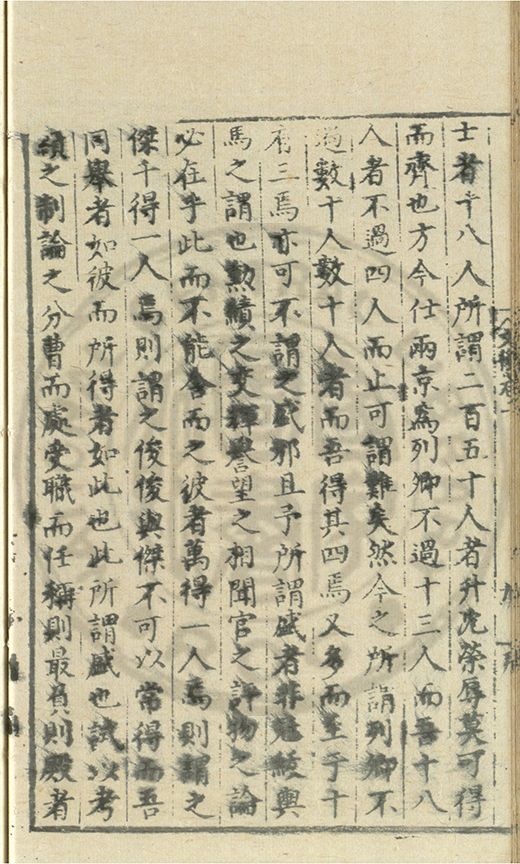 士者十八人所謂二百五十人者升沈榮辱莫可得
而齊也方今仕兩京爲列卿不過十三人而吾十八
人者不過四人而止可謂難矣然今之所謂列卿不
過數十人數十人者而吾得其四焉又多而至于十
有三焉亦可不謂之盛邪且予所謂盛者非冕紱輿
馬之謂也勲績之交輝譽望之相聞官之評物之論
必在乎此而不能舍而之彼者萬得一人焉則謂之
傑千得一人焉則謂之俊俊與傑不可以常得而吾
同舉者如彼而所得者如此也此所謂盛也試以考
績之制論之分曹而處受職而任稱則最負則殿者